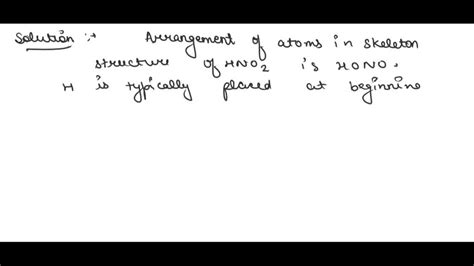 Solution :- Arrangement of atoms in skeleton
structure of HNO2 is HONO.
H is typically placed at beginning